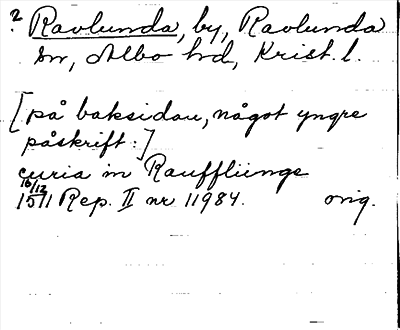 ? Ravlunda, by, Ravlunda
sn, Albo hd, Krist. l.
[på baksidan, något yngre
påskrift:]
curia in Raufflünge
16/12
1571 Rep. II nr 11984. orig.